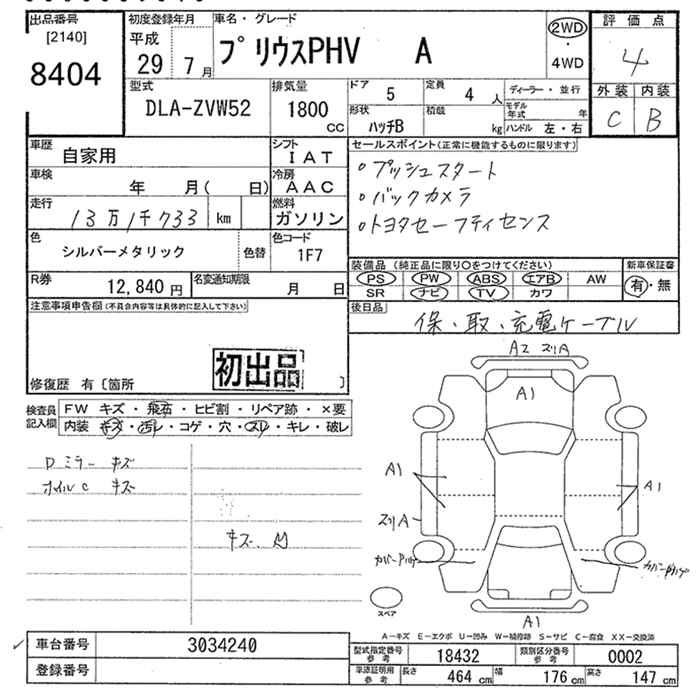 出品番号 初度登録年月 車名・グレード 評価点
[2140] 平成
8404 29 7月 プリウスPHV A 2WD・4WD 4
型式 排気量 ドア 定員 ディーラー・並行 外装 内装
DLA-ZVW52 1800 CC 5 4人 モデル年式 年 C B
形状 積載
ハッチB kg ハンドル 左・右
車歴 自家用 シフト IAT セールスポイント(正常に機能するものに限ります)
車検 年 月( 日) 冷房 AAC ○プッシュスタート
走行 13万1千733 km 燃料 ガソリン ○バックカメラ
○トヨタセーフティセンス
色 シルバーメタリック 色替 色コード 1F7
R券 12,840円 名変通知期限 月 日
装備品(純正品に限り○をつけてください) 新車保証書
PS PW ABS エアB AW 有・無
SR ナビ TV カワ
注意事項申告欄(不具合内容等は具体的に記入して下さい) 後日品
保・取・充電ケーブル
初出品
修復歴 有〔箇所 〕
検査員記入欄 FW キズ・飛石・ヒビ割・リペア跡・×要
内装 キズ・汚レ・コゲ・穴・スレ・キレ・破レ
Dミラー キズ
オイルC キズ
A2 ズリA
A1
A1
A1
ズリA
A1
スペア
A-キズ E-エクボ U-凹み W-補修跡 S-サビ C-腐食 XX-交換済
車台番号 3034240
登録番号
型式指定番号 参考 18432 類別区分番号 参考 0002
車庫証明用 参考 長さ 464cm 幅 176cm 高さ 147cm